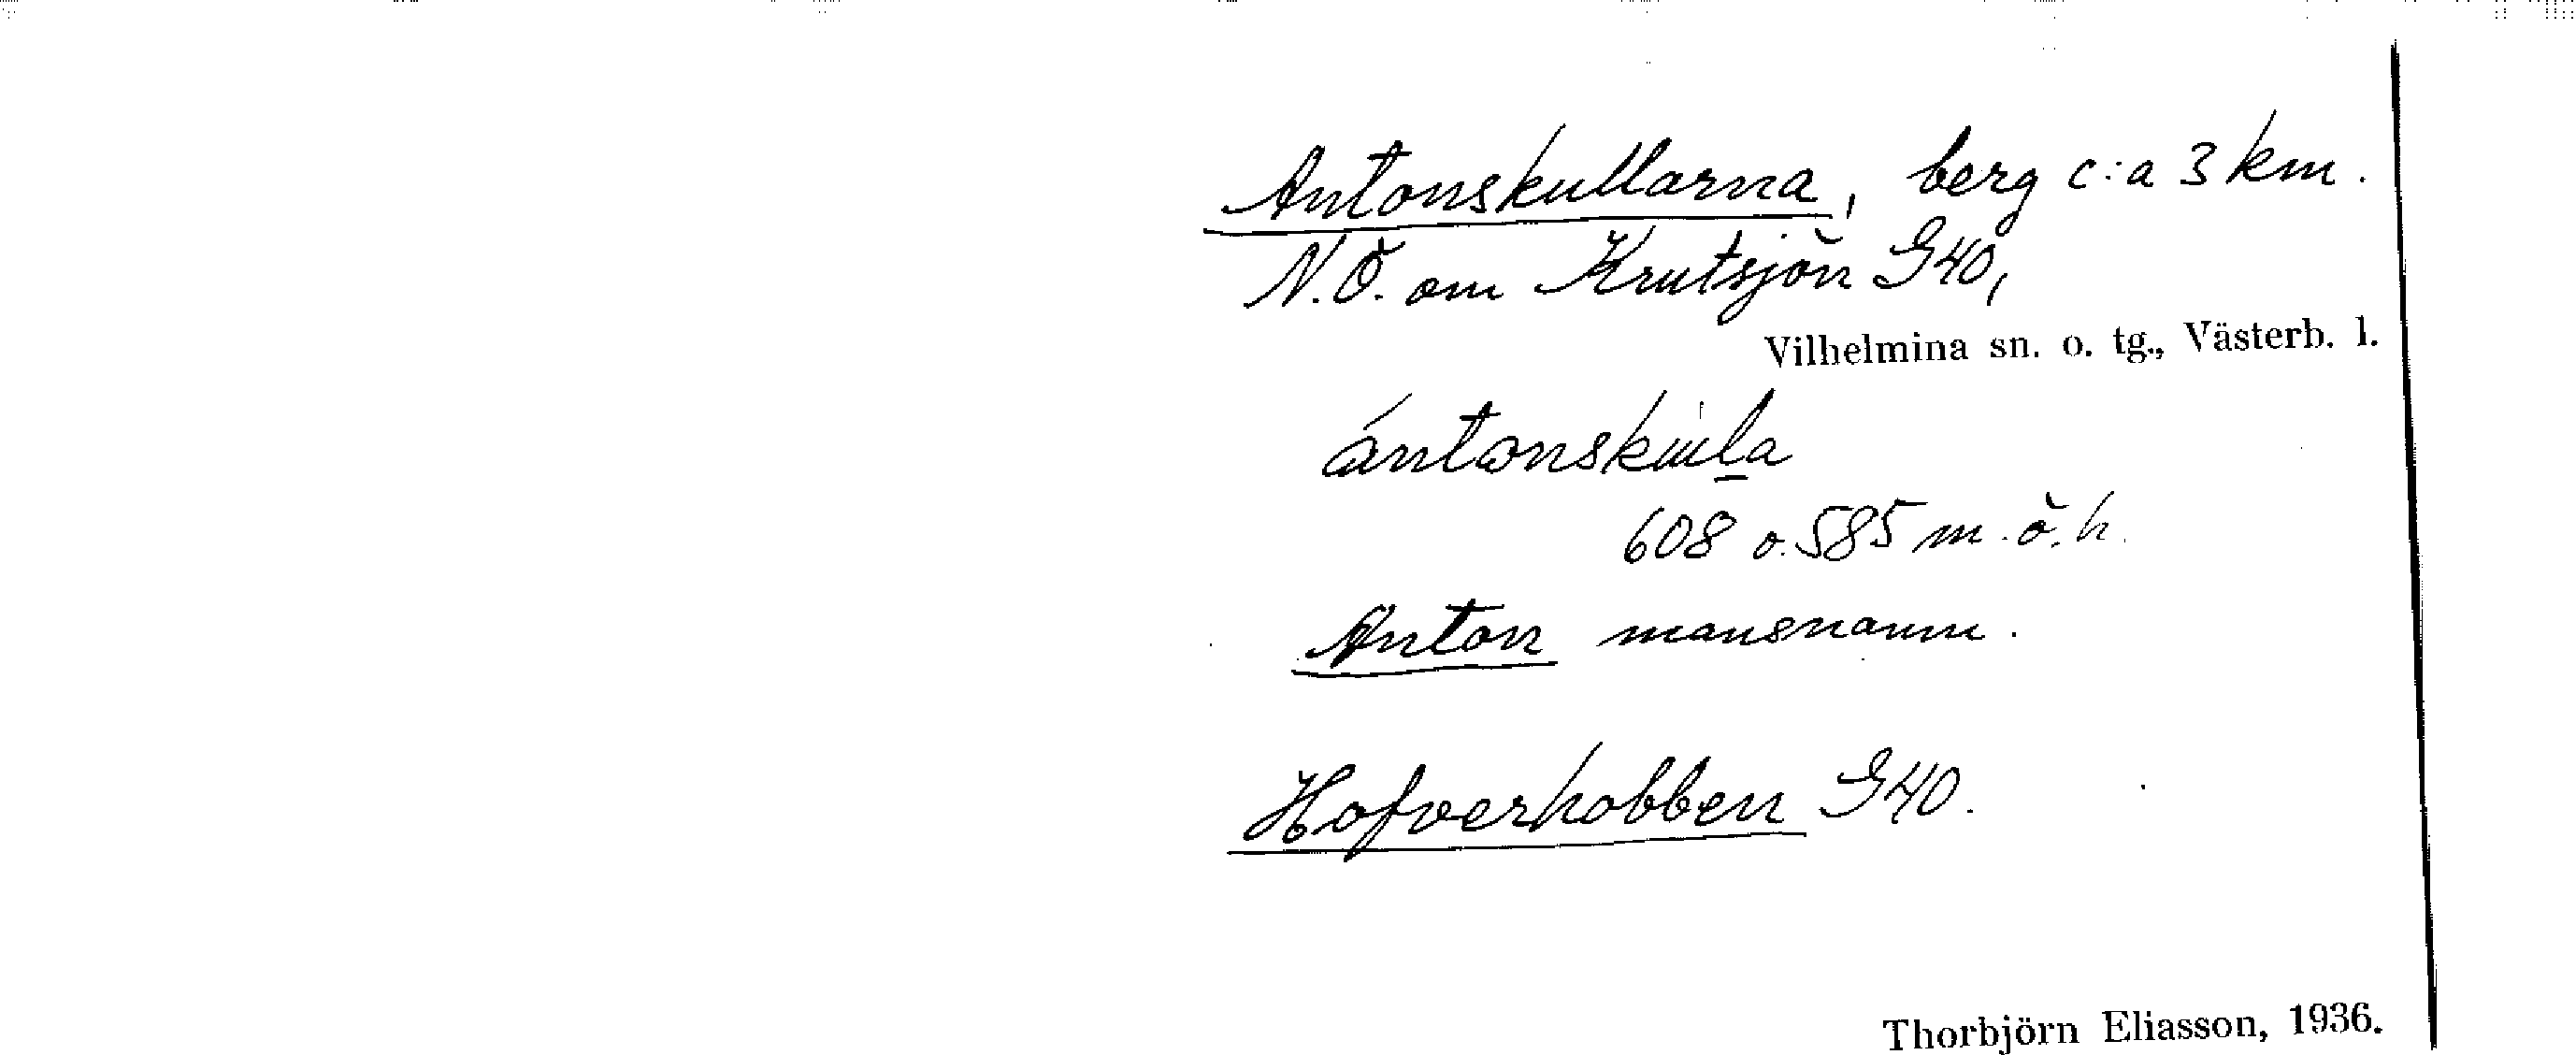 Antonskullarna, berg c:a 3 km.
N.Ö. om Krutsjön G40,
Vilhelmina sn. o. tg., Västerb. l.
608 o. 585 m.ö.h.
Anton mansnamn.
Hofverhobben G40.
Thorbjörn Eliasson, 1936.